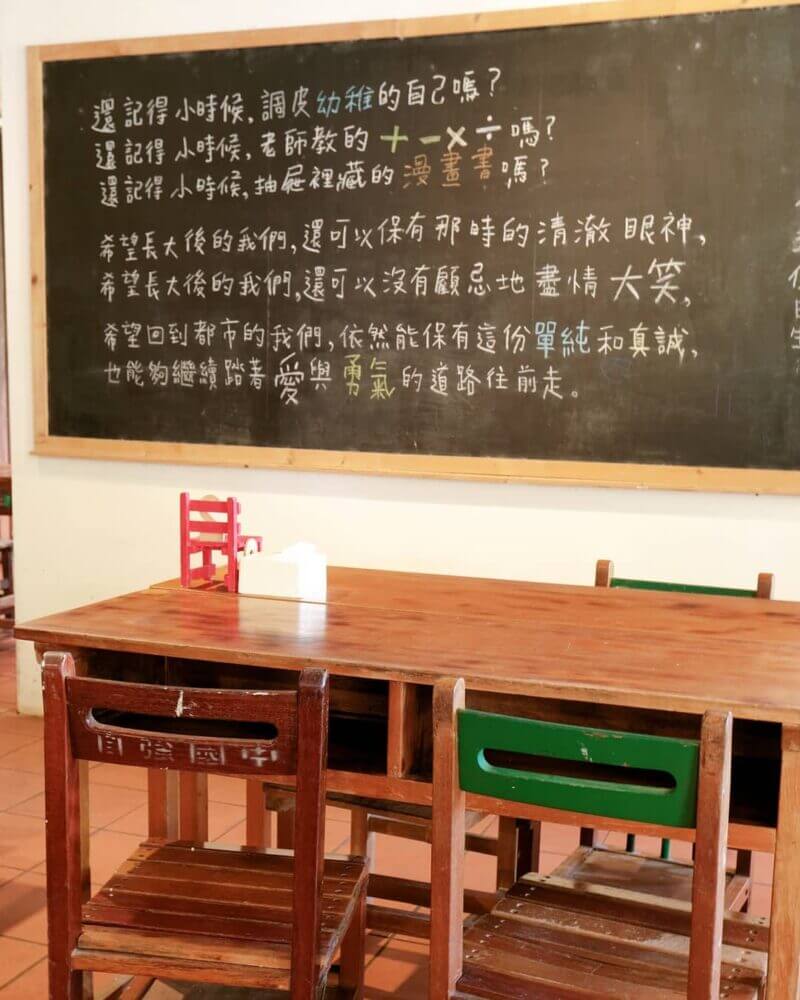 還記得小時候,調皮幼稚的自己嗎?
還記得小時候,老師教的+-×÷嗎?
還記得小時候,抽屜裡藏的漫畫書嗎?
希望長大後的我們,還可以保有那時的清澈眼神,
希望長大後的我們,還可以沒有顧忌地盡情大笑,
希望回到都市的我們,依然能保有這份單純和真誠,
也能夠繼續踏著愛與勇氣的道路往前走。
自強國中